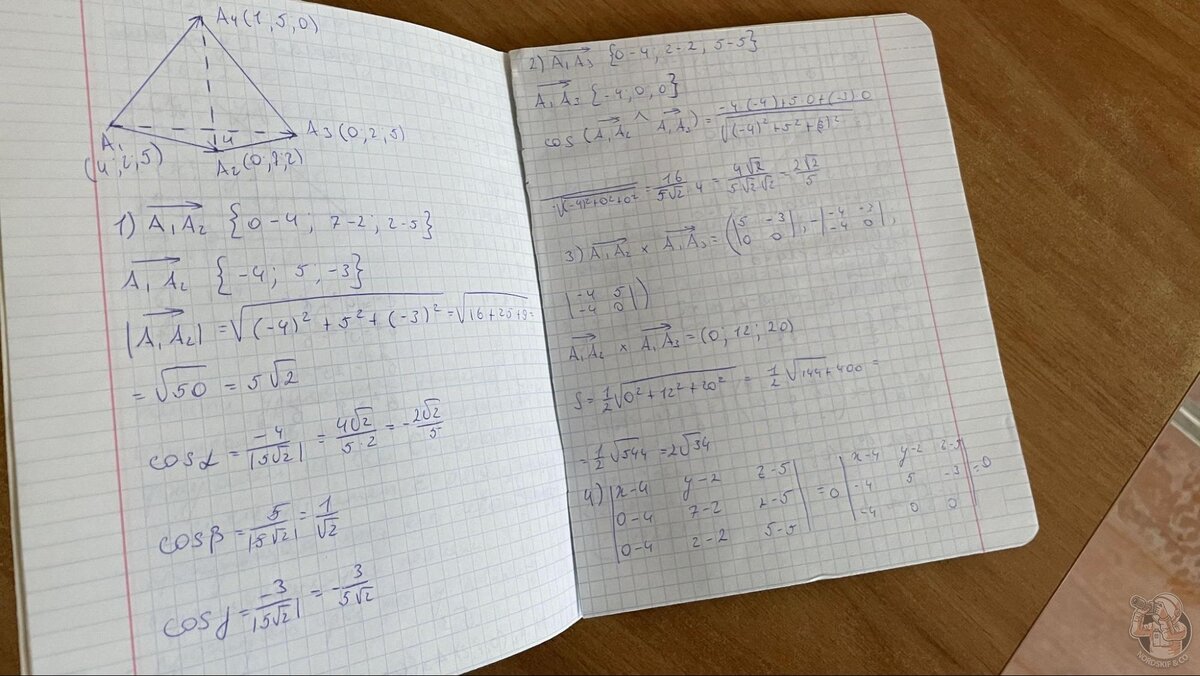 A4(1,5,0)
A1
(4;2;5)
4
A3(0;2,5)
A2(0;7;2)
1) A1A2 {0-4; 7-2; 2-5}
A1A2 {-4; 5, -3}
|A1A2| = √((-4)² + 5² + (-3)²) = √(16+25+9) =
= √50 = 5√2
cosα = -4/|5√2| = 4√2/5·2 = -2√2/5
cosβ = 5/|5√2| = 1/√2
cosγ = -3/|5√2| = -3/5√2
2) A1A3 {0-4; 2-2, 5-5}
A1A3 {-4, 0, 0}
cos (A1A2 ^ A1A3) = -4·(-4)+5·0+(-3)·0
√((-4)²+5²+(3)²)
√((-4)²+0²+0²) = 16/5√2·4 = 4√2/5√2√2 = 2√2/5
3) A1A2 × A1A3 = (|5 -3; 0 0|, -|-4 -3; -4 0|,
|-4 5; -4 0|)
A1A2 × A1A3 = (0; 12; 20)
S = 1/2 √(0²+12²+20²) = 1/2 √(144+400) =
= 1/2 √544 = 2√34
4) |x-4 y-2 z-5| = 0 |x-4 y-2 z-5| = 0
|0-4 7-2 2-5| |-4 5 -3|
|0-4 2-2 5-5| |-4 0 0|
NORDSKIF & CO